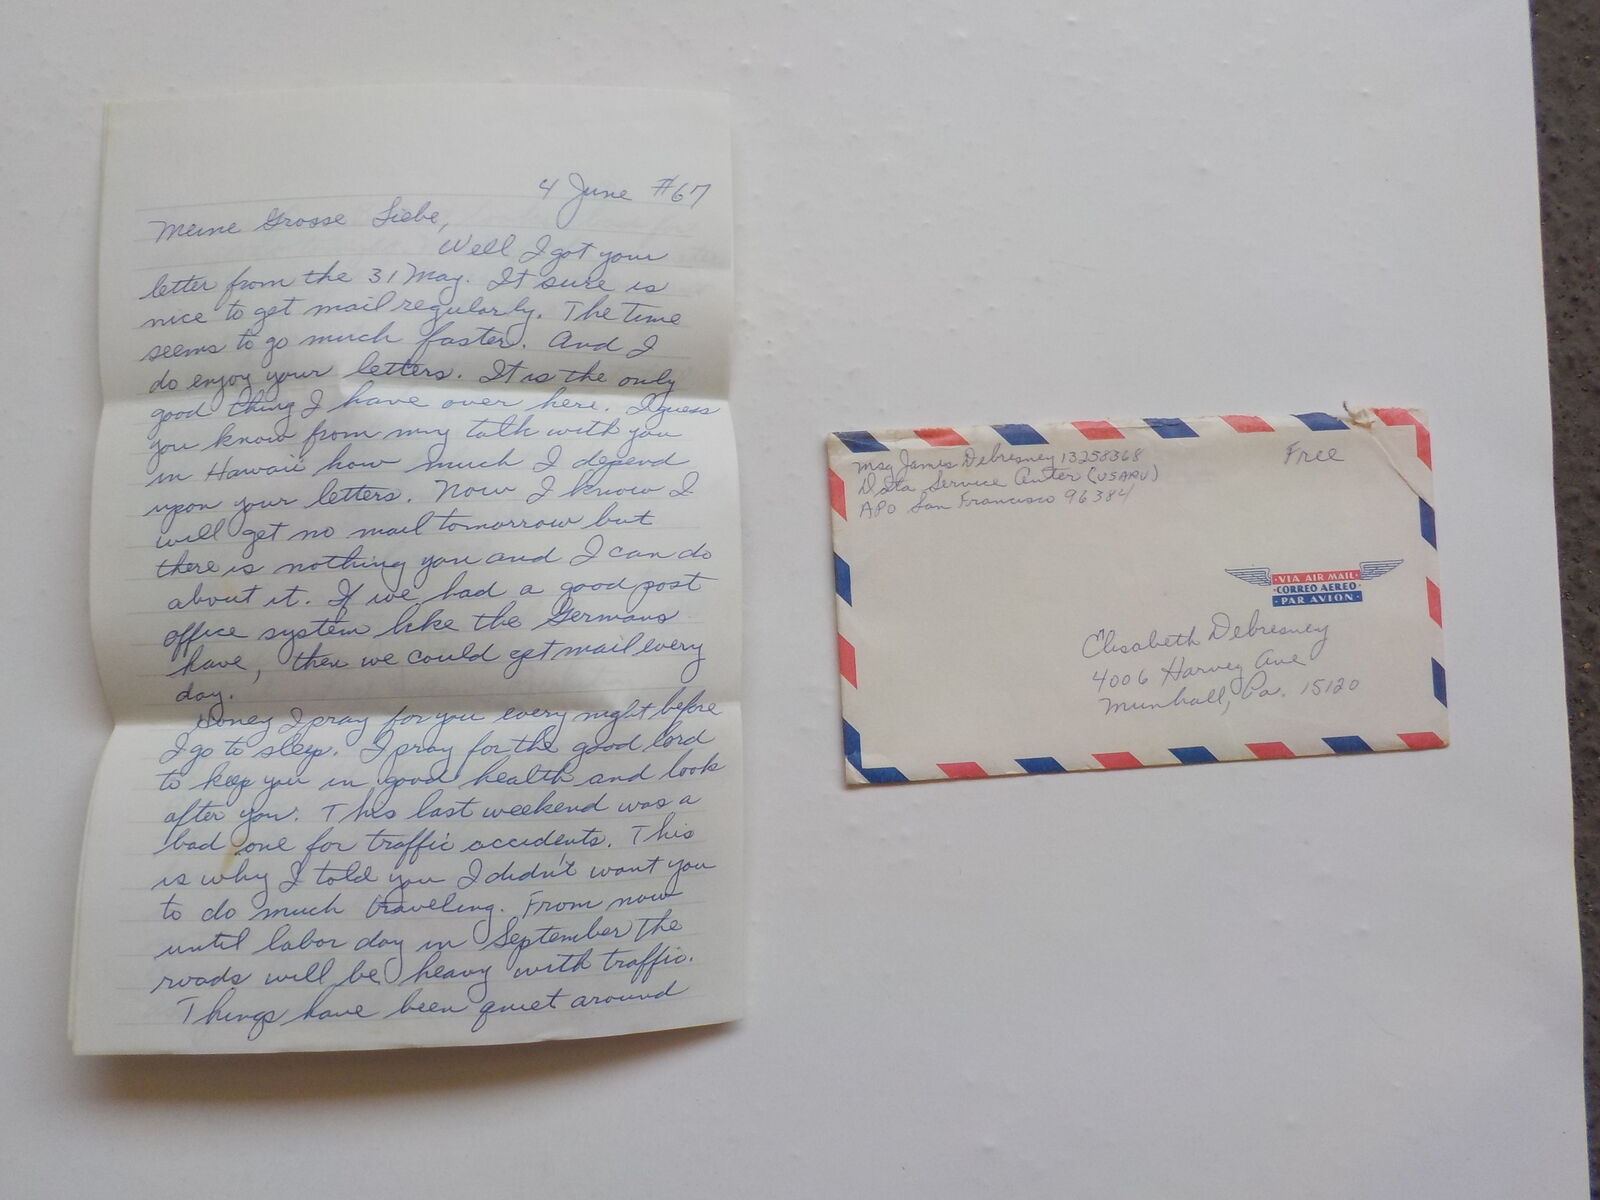 4 June #67
Meine Grosse Liebe,
Well I got your
letter from the 31 May. It sure is
nice to get mail regularly. The time
seems to go much faster. And I
do enjoy your letters. It is the only
good thing I have over here. I guess
you know from my talk with you
in Hawaii how much I depend
upon your letters. Now I know I
will get no mail tomorrow but
there is nothing you and I can do
about it. If we had a good post
office system like the Germans
have, then we could get mail every
day.
Honey I pray for you every night before
I go to sleep. I pray for the good lord
to keep you in good health and look
after you. This last weekend was a
bad one for traffic accidents. This
is why I told you I didn't want you
to do much traveling. From now
until labor day in September the
roads will be heavy with traffic.
Things have been quiet around
Msg James Debresney 13258368
D Sta Service Center (USARV)
APO San Francisco 96384
Free
VIA AIR MAIL
CORREO AEREO
PAR AVION
Elisabeth Debresney
4006 Harvey Ave
Munhall, Pa. 15120